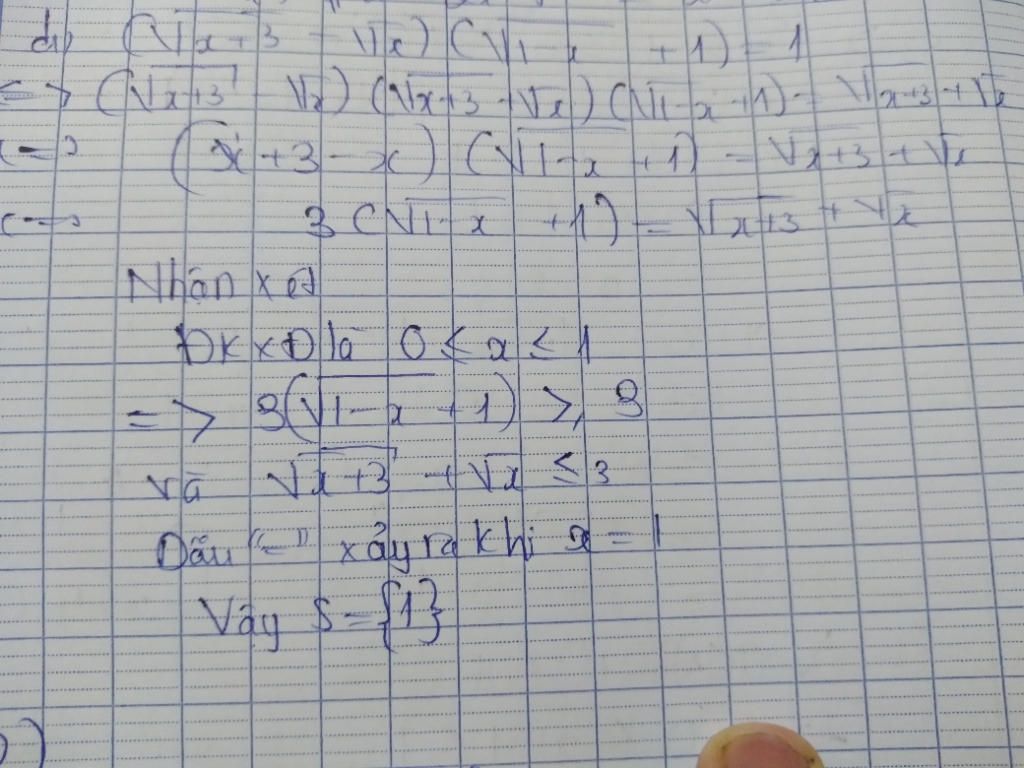 d) (√x+3 - √x) (√1-x + 1) = 1
<=> (√x+3 - √x) (√x+3 + √x) (√1-x + 1) = √x+3 + √x
<=> (x + 3 - x) (√1-x + 1) = √x+3 + √x
<=> 3 (√1-x + 1) = √x+3 + √x
Nhận xét
ĐKXĐ là 0 ≤ x ≤ 1
=> 3(√1-x + 1) ≥ 3
và √x+3 + √x ≤ 3
Dấu "=" xảy ra khi x = 1
Vậy S = {1}